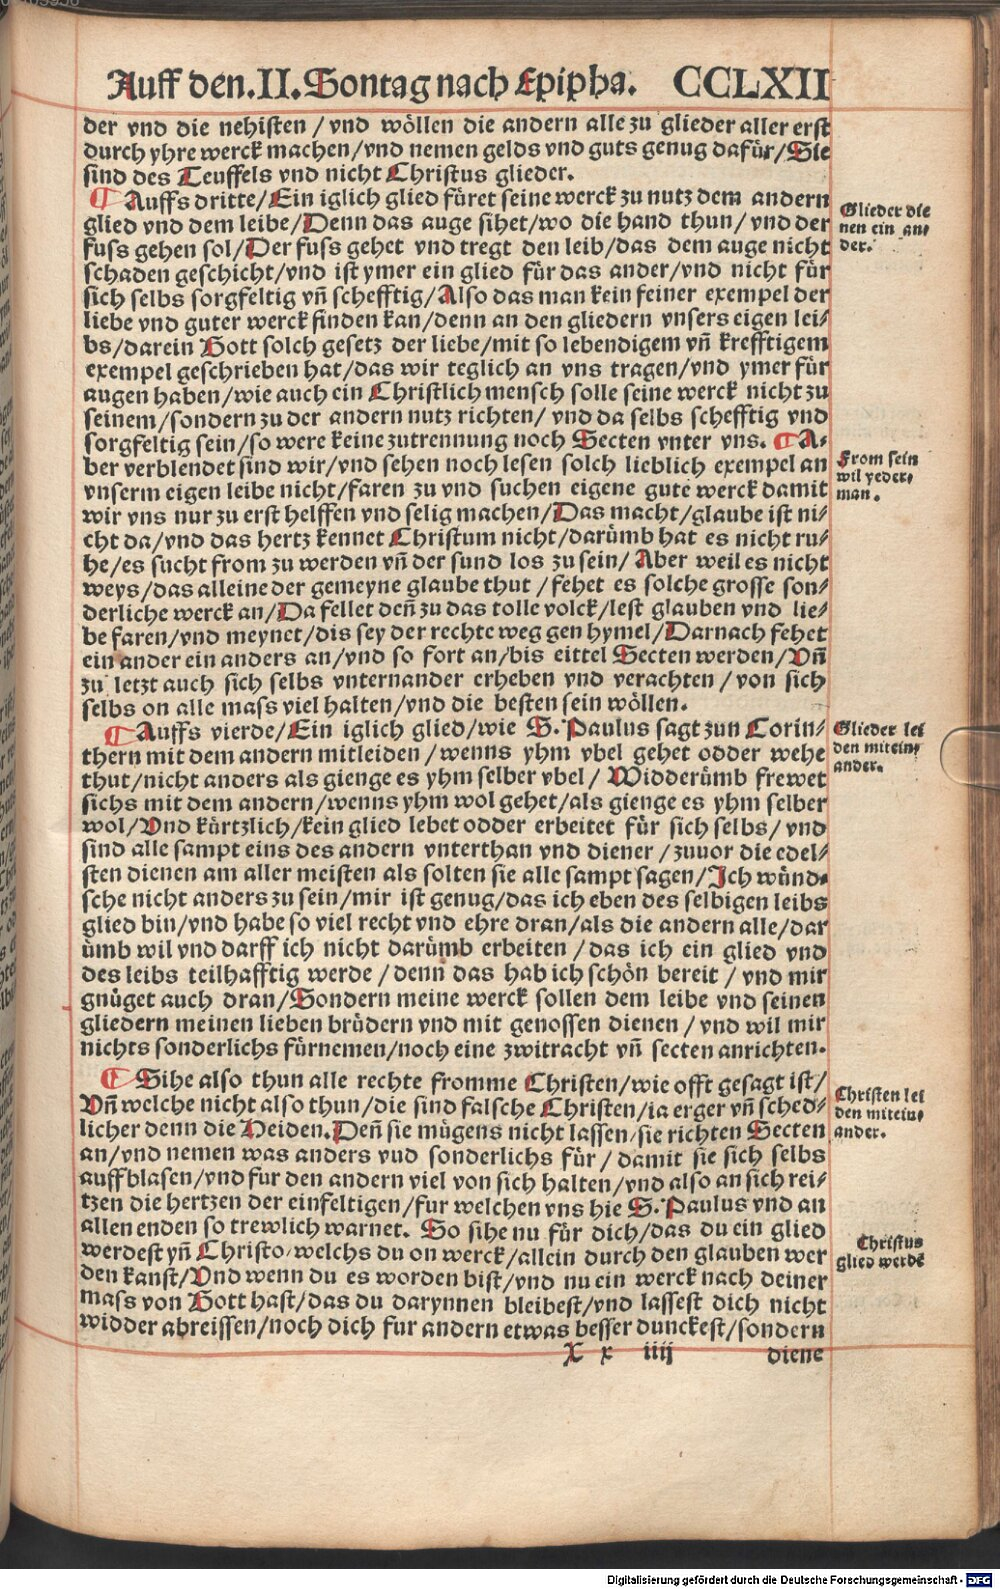 Auff den.II.Sontag nach Epipha. CCLXII
der vnd die nehisten / vnd wöllen die andern alle zu glieder aller erst
durch yhre werck machen/vnd nemen gelds vnd guts genug dafür/Sie
sind des Teuffels vnd nicht Christus glieder.
¶ Auffs dritte/Ein iglich glied füret seine werck zu nutz dem andern
glied vnd dem leibe/Denn das auge sihet/wo die hand thun/vnd der
fuss gehen sol/Der fuss gehet vnd tregt den leib/das dem auge nicht
schaden geschicht/vnd ist ymer ein glied für das ander/vnd nicht für
sich selbs sorgfeltig vn̄ schefftig/Also das man kein feiner exempel der
liebe vnd guter werck finden kan/denn an den gliedern vnsers eigen lei/
bs/darein Gott solch gesetz der liebe/mit so lebendigem vn̄ krefftigem
exempel geschrieben hat/das wir teglich an vns tragen/vnd ymer für
augen haben/wie auch ein Christlich mensch solle seine werck nicht zu
seinem/sondern zu der andern nutz richten/ vnd da selbs schefftig vnd
sorgfeltig sein/so were keine zutrennung noch Secten vnter vns. ¶ A-
ber verblendet sind wir/vnd sehen noch lesen solch lieblich exempel an
vnserm eigen leibe nicht/faren zu vnd suchen eigene gute werck damit
wir vns nur zu erst helffen vnd selig machen/Das macht/glaube ist ni/
cht da/vnd das hertz kennet Christum nicht/darümb hat es nicht ru/
he/es sucht from zu werden vn̄ der sund los zu sein/ Aber weil es nicht
weys/das alleine der gemeyne glaube thut / fehet es solche grosse son/
derliche werck an/Da fellet deñ zu das tolle volck/lest glauben vnd lie/
be faren/vnd meynet/dis sey der rechte weg gen hymel/Darnach fehet
ein ander ein anders an/vnd so fort an/bis eittel Secten werden/Vn̄
zu letzt auch sich selbs vnternander erheben vnd verachten / von sich
selbs on alle mass viel halten/vnd die besten sein wöllen.
¶ Auffs vierde/Ein iglich glied/wie S. Paulus sagt zun Corin/
thern mit dem andern mitleiden / wenns yhm vbel gehet odder wehe
thut/nicht anders als gienge es yhm selber vbel / Widderümb frewet
sichs mit dem andern/wenns yhm wol gehet/als gienge es yhm selber
wol/Vnd kürtzlich/kein glied lebet odder erbeitet für sich selbs/ vnd
sind alle sampt eins des andern vnterthan vnd diener / zuuor die edel/
sten dienen am aller meisten als solten sie alle sampt sagen/Ich wünd-
sche nicht anders zu sein/mir ist genug/das ich eben des selbigen leibs
glied bin/vnd habe so viel recht vnd ehre dran/als die andern alle/dar
ümb wil vnd darff ich nicht darümb erbeiten / das ich ein glied vnd
des leibs teilhafftig werde / denn das hab ich schön bereit / vnd mir
gnüget auch dran/Sondern meine werck sollen dem leibe vnd seinen
gliedern meinen lieben brüdern vnd mit genossen dienen / vnd wil mir
nichts sonderlichs fürnemen/noch eine zwitracht vn̄ secten anrichten.
¶ Sihe also thun alle rechte fromme Christen/wie offt gesagt ist/
Vn̄ welche nicht also thun/die sind falsche Christen/ia erger vn̄ sched/
licher denn die Heiden. Deñ sie mügens nicht lassen/sie richten Secten
an/vnd nemen was anders vud sonderlichs für / damit sie sich selbs
auffblasen/vnd fur den andern viel von sich halten/vnd also an sich rei/
tzen die hertzen der einfeltigen/fur welchen vns hie S. Paulus vnd an
allen enden so trewlich warnet. So sihe nu für dich/das du ein glied
werdest yn̄ Christo/welchs du on werck/allein durch den glauben wer
den kanst/Vnd wenn du es worden bist/vnd nu ein werck nach deiner
mass von Gott hast/das du darynnen bleibest/vnd lassest dich nicht
widder abreissen/noch dich fur andern etwas besser dunckest/sondern
X x iiij diene
Glieder die
nen ein an/
der.
From sein
wil yeder/
man.
Glieder lei
den mitein/
ander.
Christen lei
den miteiu/
ander.
Christus
glied werdē
Digitalisierung gefördert durch die Deutsche Forschungsgemeinschaft - DFG